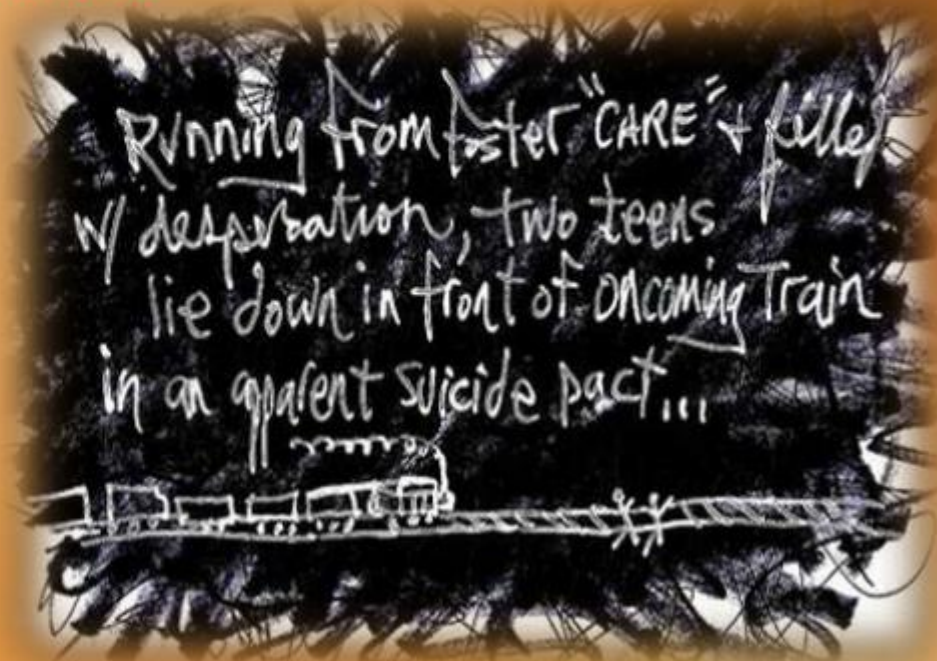 Running from foster "CARE" + filled
w/ desperation, two teens
lie down in front of oncoming Train
in an apparent suicide pact...